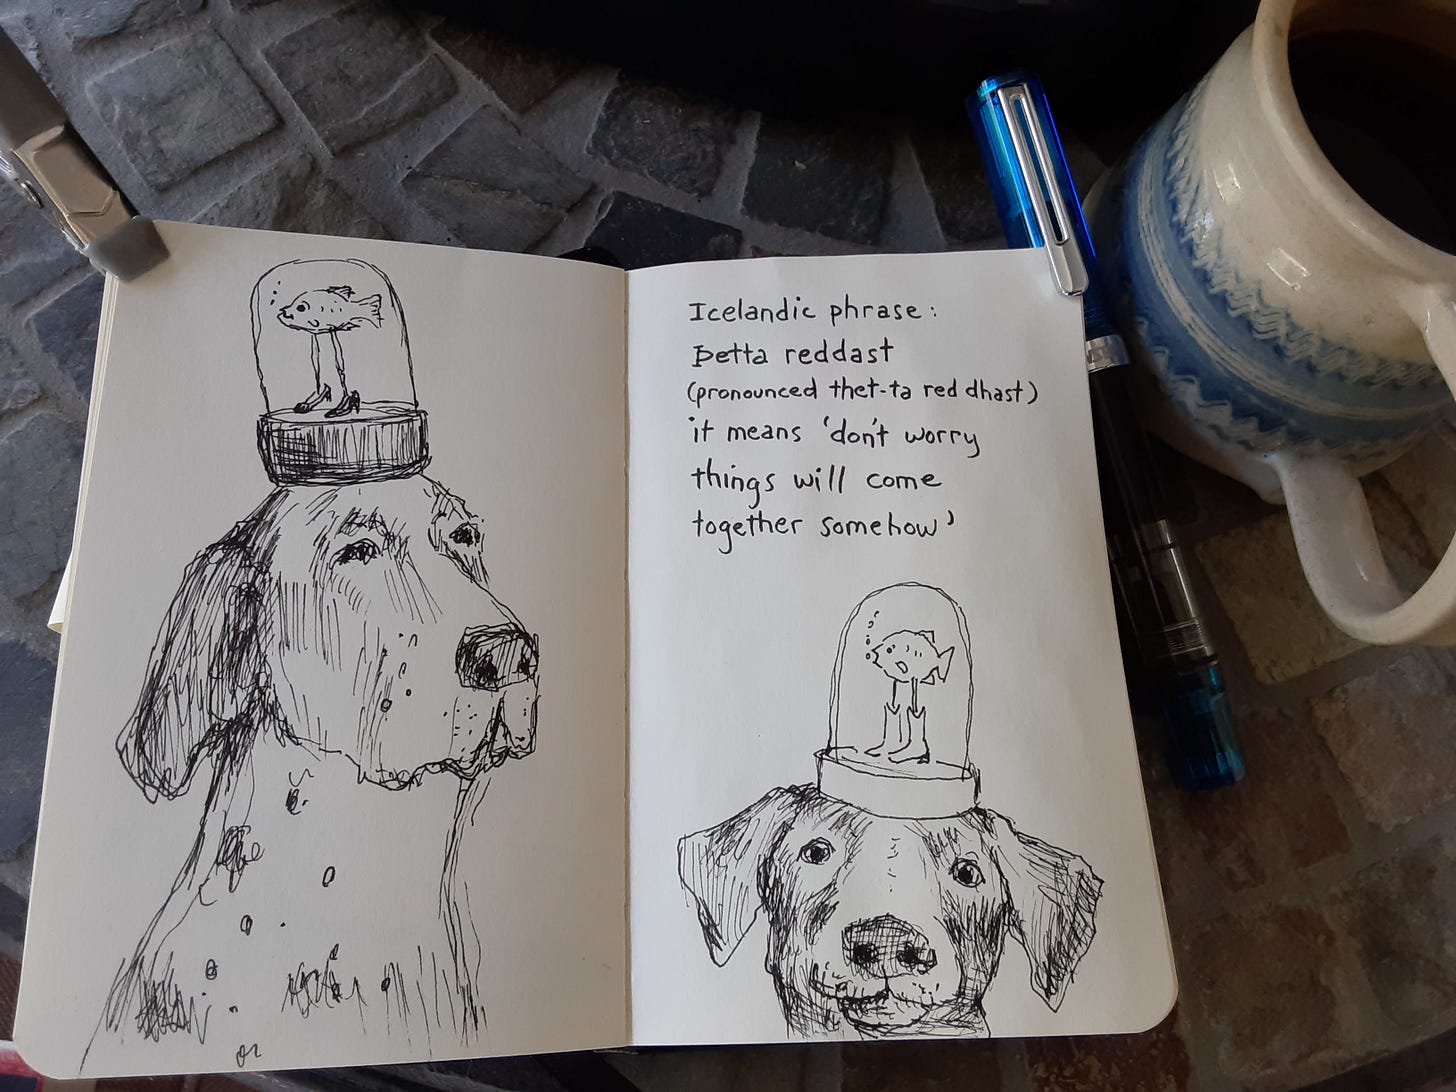 Icelandic phrase:
Þetta reddast
(pronounced thet-ta red dhast)
it means 'don't worry
things will come
together somehow'